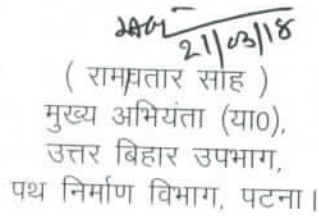 21/03/18
( रामवतार साह )
मुख्य अभियंता (या0),
उत्तर बिहार उपभाग,
पथ निर्माण विभाग, पटना।